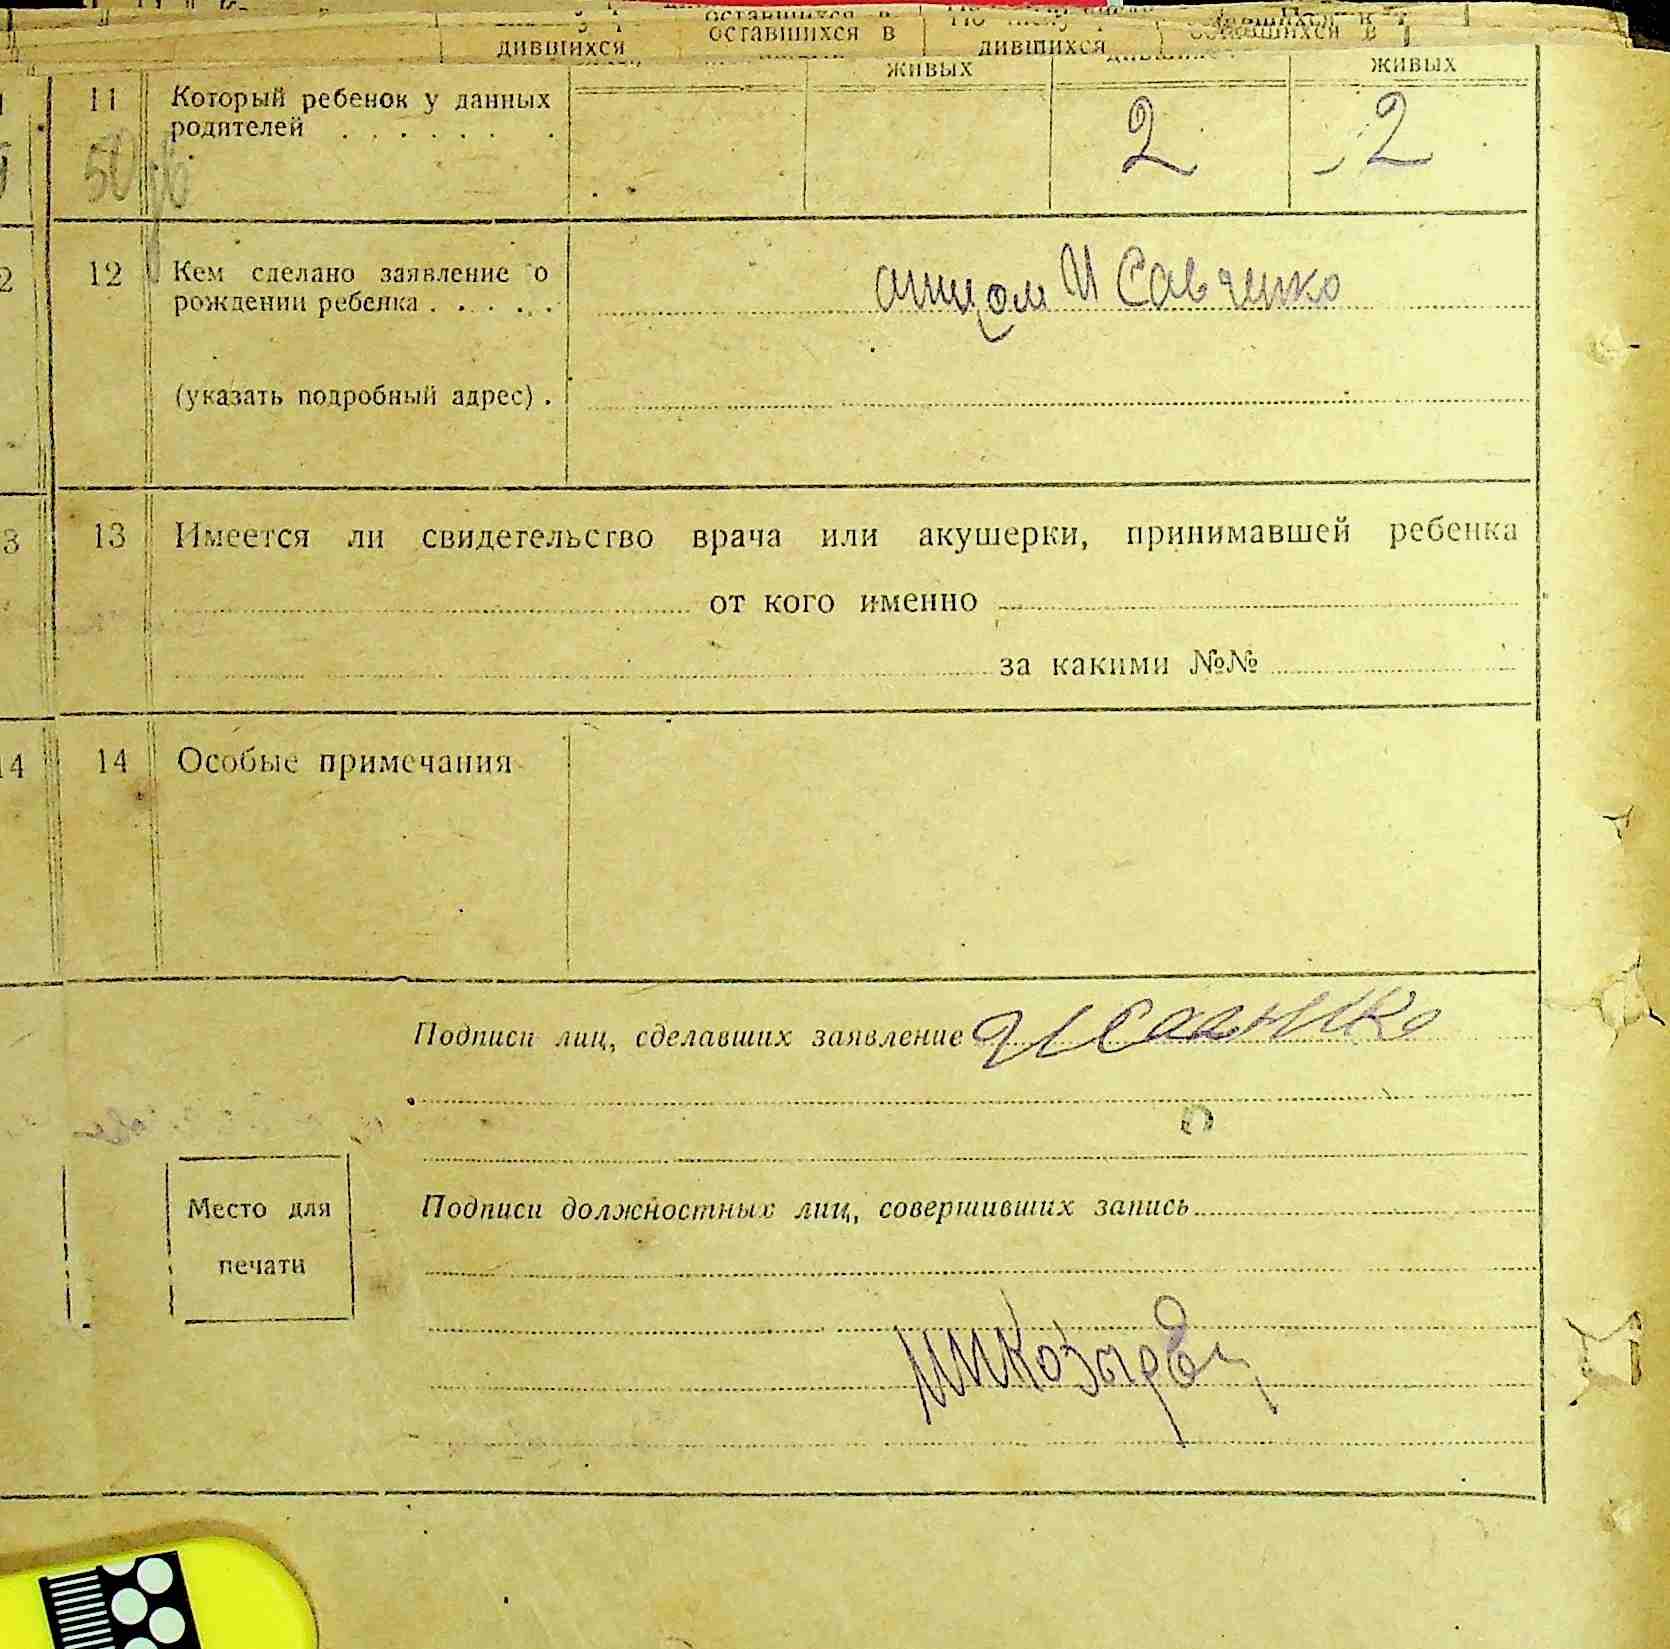 оставшихся в
дившихся оставшихся в дившихся
живых живых
11 Который ребенок у данных
родителей . . . . . . . 2 2
12 Кем сделано заявление о
рождении ребенка . . . . . . отцом И Савченко
(указать подробный адрес) .
13 Имеется ли свидетельство врача или акушерки, принимавшей ребенка
от кого именно
за какими №№
14 Особые примечания
Подписи лиц, сделавших заявление
Место для
печати
Подписи должностных лиц, совершивших запись